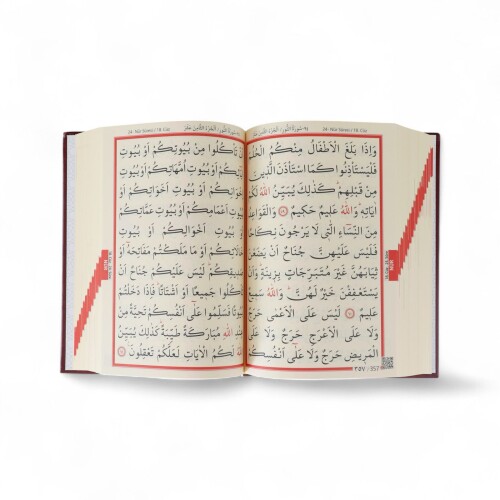 24. Nûr Sûresi / 18. Cüz
وَاِذَا بَلَغَ الْاَطْفَالُ مِنْكُمُ
فَلْيَسْتَأْذِنُوا كَمَا اسْتَأْذَنَ الَّذٖينَ
مِنْ قَبْلِهِمْ كَذٰلِكَ يُبَيِّنُ اللّٰهُ
اٰيَاتِهٖ وَاللّٰهُ عَلٖيمٌ حَكٖيمٌ ﴿٥٩﴾ وَالْقَوَاعِدُ
مِنَ النِّسَاءِ الّٰتٖي لَا يَرْجُونَ نِكَاحًا
فَلَيْسَ عَلَيْهِنَّ جُنَاحٌ اَنْ يَضَعْنَ
ثِيَابَهُنَّ غَيْرَ مُتَبَرِّجَاتٍ بِزٖينَةٍ وَاَنْ
يَسْتَعْفِفْنَ خَيْرٌ لَهُنَّ وَاللّٰهُ سَمٖيعٌ
عَلٖيمٌ ﴿٦٠﴾ لَيْسَ عَلَى الْاَعْمٰى حَرَجٌ
وَلَا عَلَى الْاَعْرَجِ حَرَجٌ وَلَا عَلَى
الْمَرٖيضِ حَرَجٌ وَلَا عَلٰى اَنْفُسِكُمْ
٣٥٧ / 357
24. Nûr Sûresi / 18. Cüz
تَأْكُلُوا مِنْ بُيُوتِكُمْ اَوْ بُيُوتِ
اَوْ بُيُوتِ اُمَّهَاتِكُمْ اَوْ بُيُوتِ
اَوْ بُيُوتِ اَخَوَاتِكُمْ اَوْ
اَعْمَامِكُمْ اَوْ بُيُوتِ عَمَّاتِكُمْ
بُيُوتِ اَخْوَالِكُمْ اَوْ بُيُوتِ
اَوْ مَا مَلَكْتُمْ مَفَاتِحَهُ اَوْ
لَيْسَ عَلَيْكُمْ جُنَاحٌ اَنْ
جَمٖيعًا اَوْ اَشْتَاتًا فَاِذَا دَخَلْتُمْ
فَسَلِّمُوا عَلٰى اَنْفُسِكُمْ تَحِيَّةً مِنْ
اللّٰهِ مُبَارَكَةً طَيِّبَةً كَذٰلِكَ يُبَيِّنُ
لَكُمُ الْاٰيَاتِ لَعَلَّكُمْ تَعْقِلُونَ ﴿٦١﴾